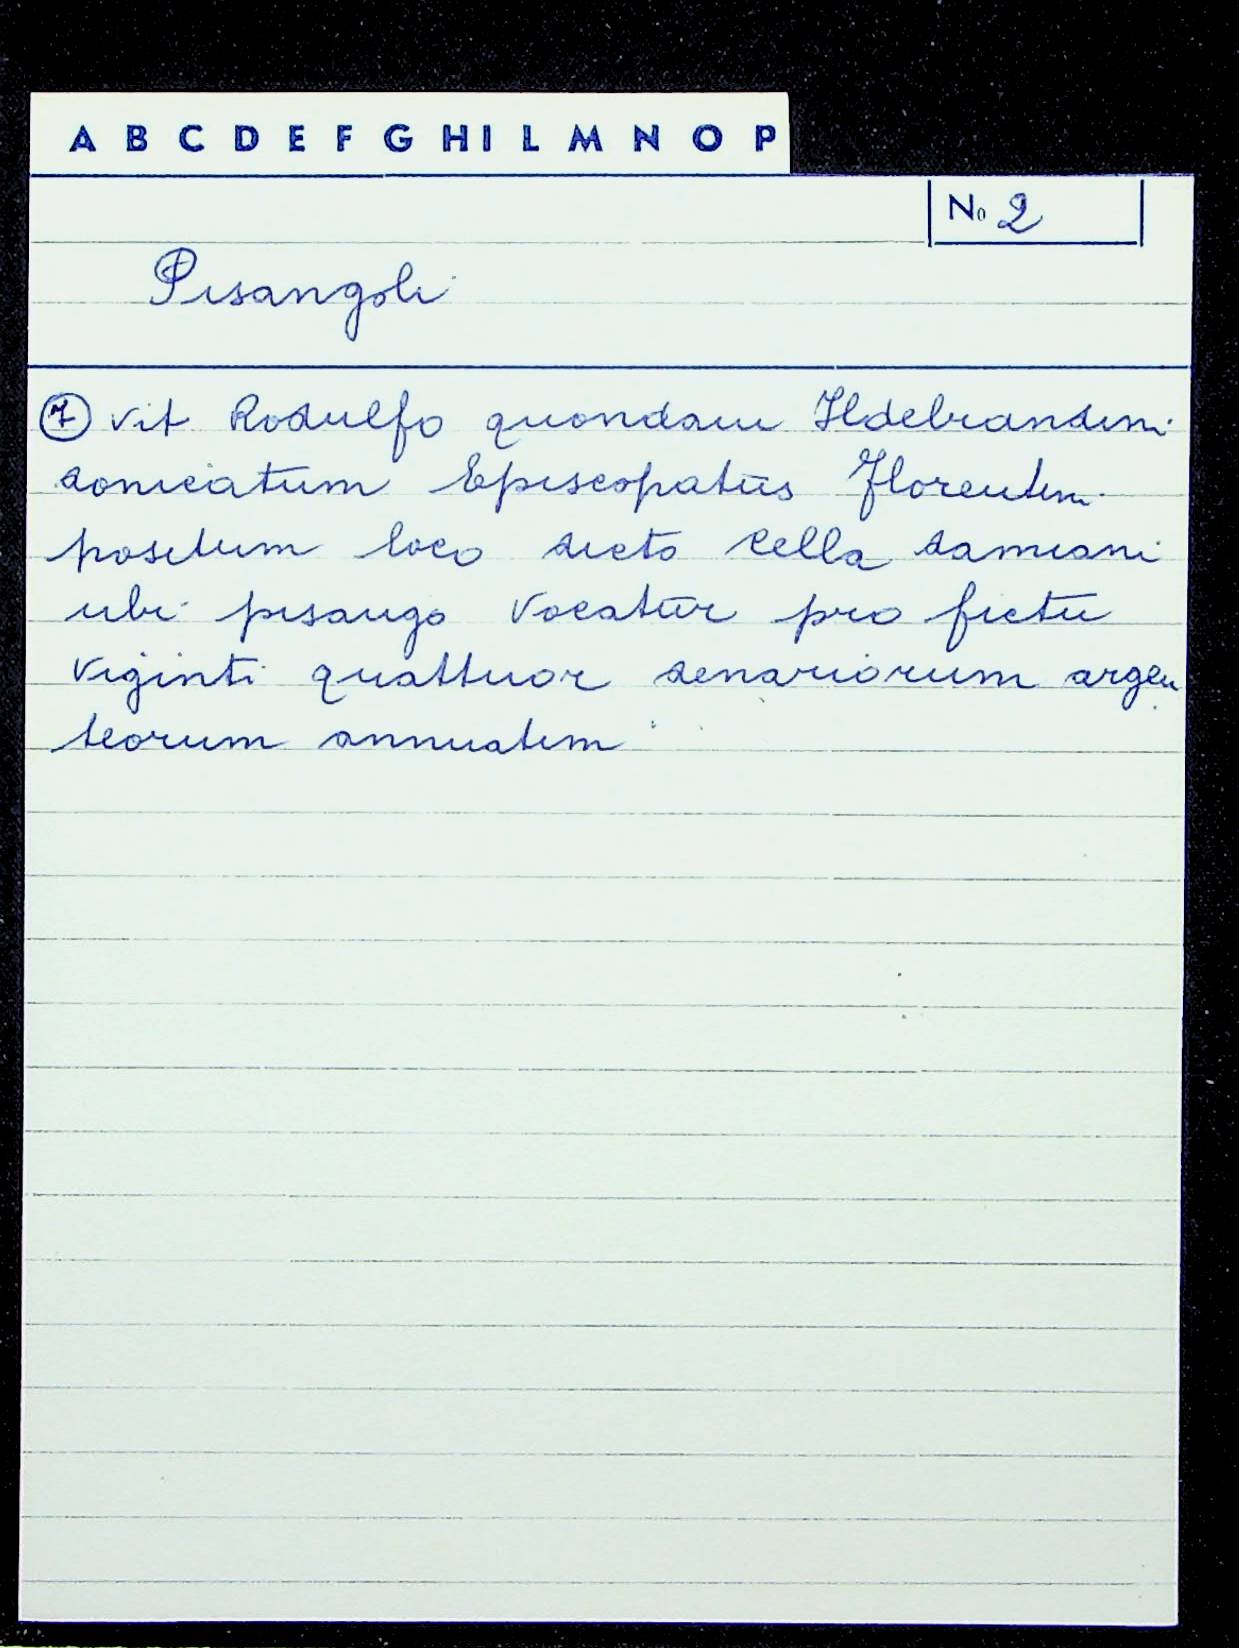 A B C D E F G H I L M N O P
No 2
Pisangoli
7 vit Rodulfo quondam Ildebrandini
donicatum Episcopatus Florentini
positum loco dicto Cella damiani
ubi pisango vocatur pro fictu
viginti quattuor denariorum argen
teorum annuatim